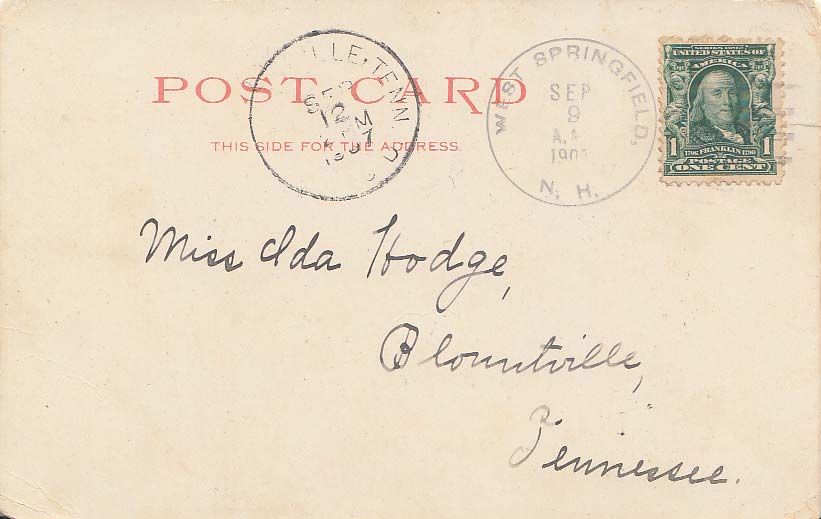 POST CARD
THIS SIDE FOR THE ADDRESS.
LLE, TENN.
SEP
12
M
1907
WEST SPRINGFIELD,
SEP
9
N. H.
SERIES 1902
UNITED STATES OF
AMERICA
1706 FRANKLIN 1790
1 POSTAGE 1
ONE CENT
Miss Ida Hodge,
Blountville,
Tennessee.